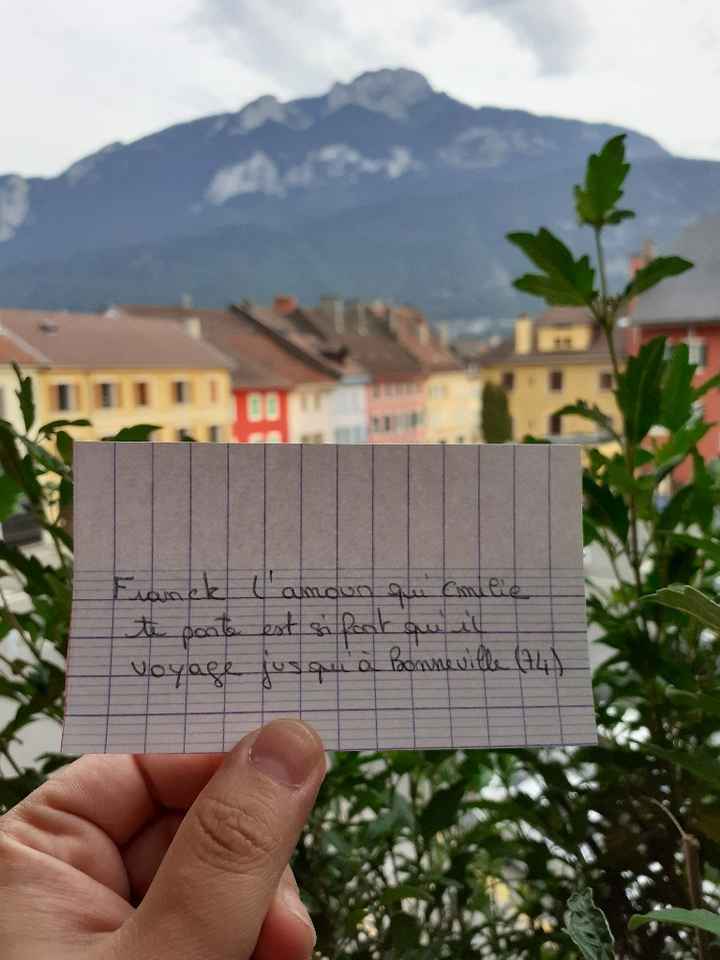 Franck l'amour qui Emilie
te porte est si fort qu'il
voyage jusqu'à Bonneville (74)